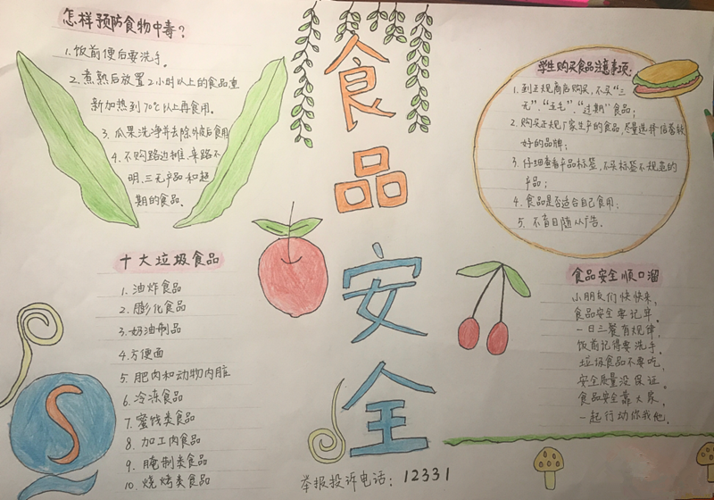 怎样预防食物中毒?
1.饭前便后要洗手。
2.煮熟后放置2小时以上的食品重
新加热到70℃以上再食用。
3.瓜果洗净并去除外皮后食用
4.不购路边摊、来路不
明、三无产品和超
期的食品。
十大垃圾食品
1.油炸食品
2.膨化食品
3.奶油制品
4.方便面
5.肥肉和动物内脏
6.冷冻食品
7.蜜饯类食品
8.加工肉食品
9.腌制类食品
10.烧烤类食品
食品安全
举报投诉电话:12331
学生购买食品注意事项:
1.到正规商店购买,不买“三
无”、“五毛”、“过期”食品;
2.购买正规厂家生产的食品,尽量选择信誉较
好的品牌;
3.仔细查看产品标签,不买标签不规范的
产品;
4.食品是否适合自己食用;
5.不盲目随从广告。
食品安全顺口溜
小朋友们快快来,
食品安全要记牢。
一日三餐有规律,
饭前记得要洗手。
垃圾食品不要吃,
安全质量没保证。
食品安全靠大家,
一起行动你我他。